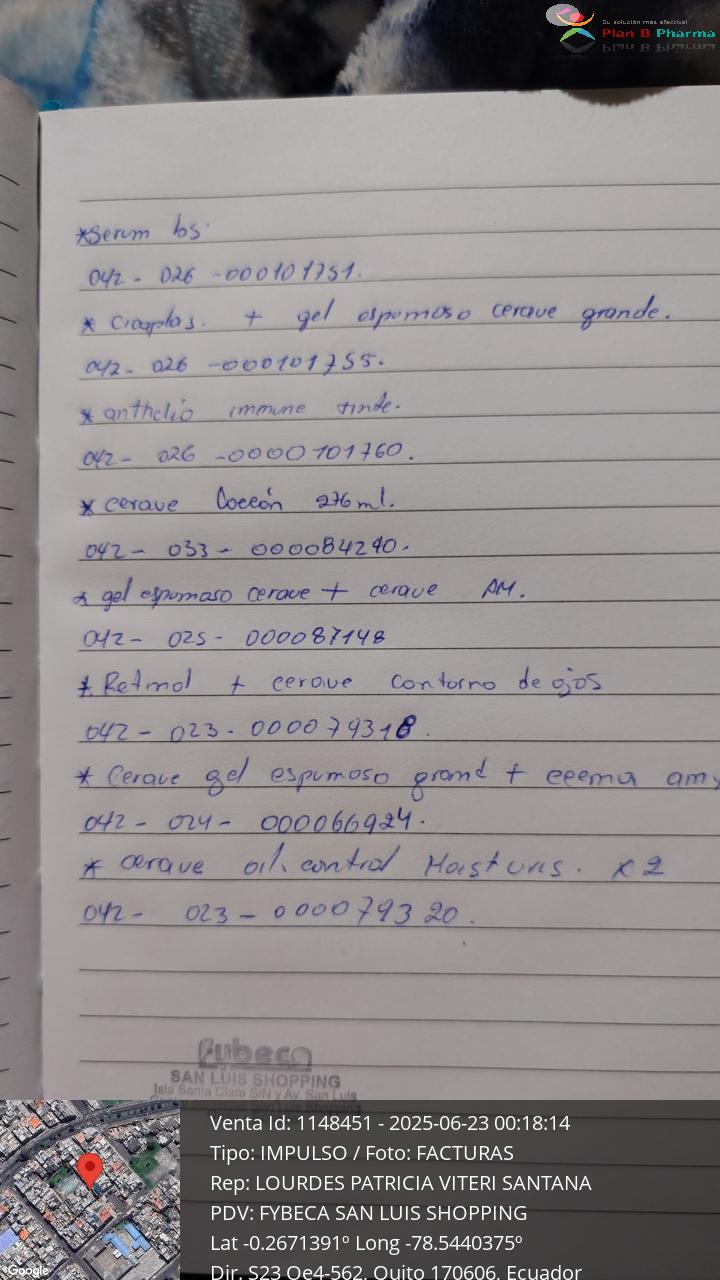 Su solución más efectiva!
Plan B Pharma
*Serum b5.
042 - 026 - 000101751.
* Cicaplas. + gel espumoso cerave grande.
042 - 026 - 000101755.
* anthelio immune tinde.
042 - 026 - 0000101760.
* cerave Loción 236ml.
042 - 033 - 000084240.
* gel espumoso cerave + cerave AM.
042 - 025 - 000087148
* Retinol + cerave contorno de ojos
042 - 023 - 000079318.
* Cerave gel espumoso grand + crema am
042 - 024 - 000066924.
* cerave oil control Moisturis. x2
042 - 023 - 000079320.
fybeca
SAN LUIS SHOPPING
Isla Santa Clara S/N y Av. San Luis
Shopping
Venta Id: 1148451 - 2025-06-23 00:18:14
Tipo: IMPULSO / Foto: FACTURAS
Rep: LOURDES PATRICIA VITERI SANTANA
PDV: FYBECA SAN LUIS SHOPPING
Lat -0.2671391° Long -78.5440375°
Dir. S23 Oe4-562, Quito 170606, Ecuador
Google